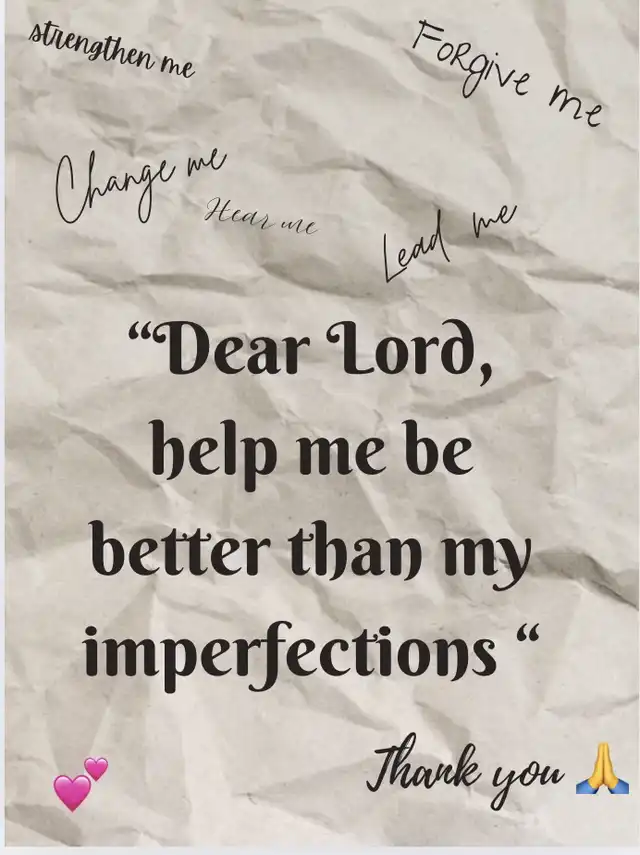 strengthen me
Forgive me
Change me
Hear me
Lead me
“Dear Lord,
help me be
better than my
imperfections “
Thank you 🙏
💕